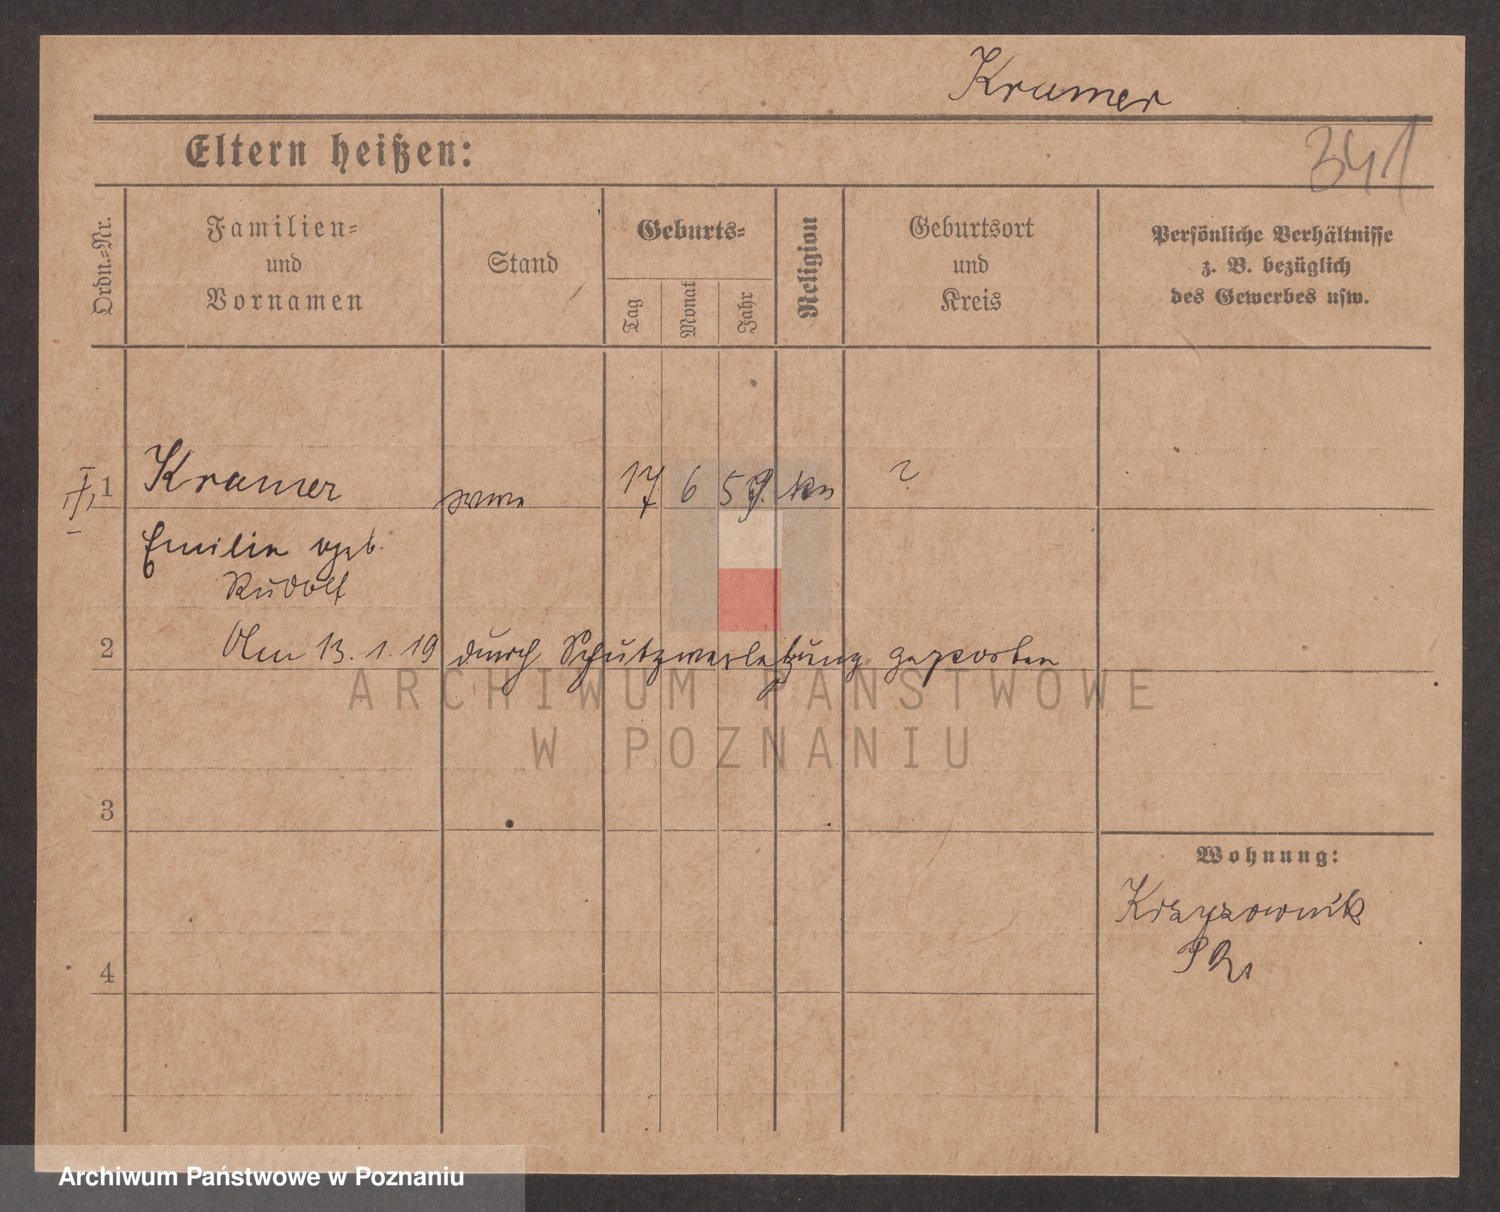 Kramer
341
Eltern heißen:
Ordn.-Nr.
Familien-
und
Vornamen
Stand
Geburts-
Tag
Monat
Jahr
Religion
Geburtsort
und
Kreis
Persönliche Verhältnisse
z. B. bezüglich
des Gewerbes usw.
1 Kramer 17 6 59. ?
Emilie geb.
Rudolf
2 Am 13. 1. 19 durch Schutzverletzung gestorben
ARCHIWUM PAŃSTWOWE
W POZNANIU
3
Wohnung:
Krzyzownik
4
Archiwum Państwowe w Poznaniu